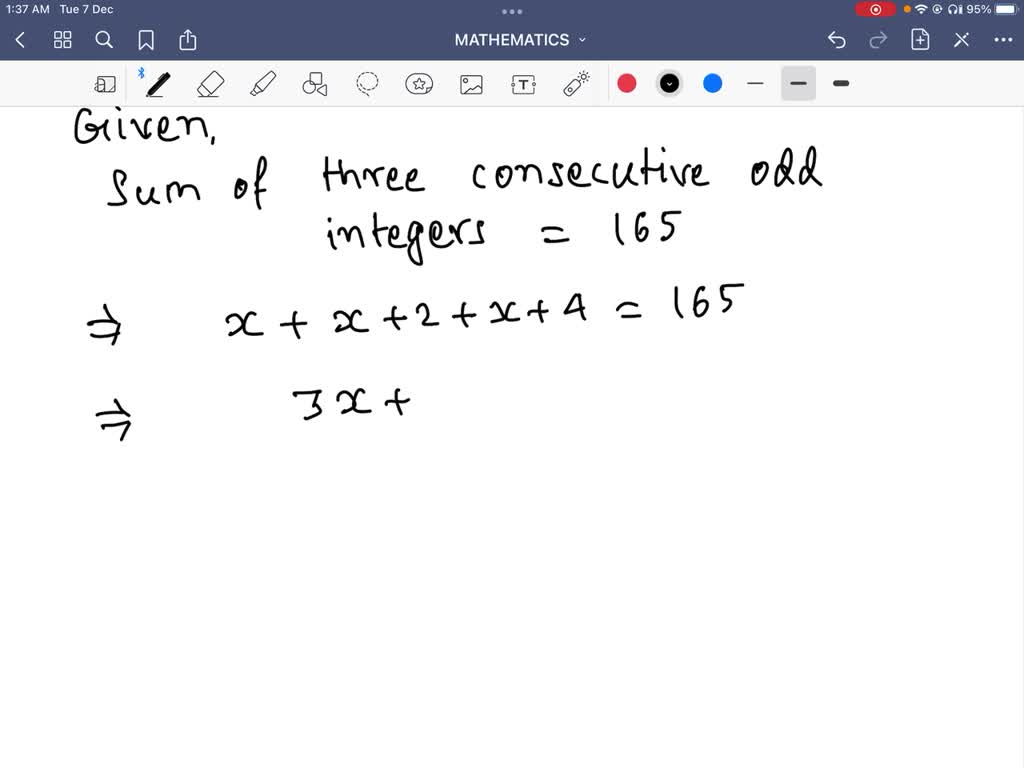 1:37 AM Tue 7 Dec 95%
MATHEMATICS
T
Given,
Sum of three consecutive odd
integers = 165
⇒ x + x + 2 + x + 4 = 165
⇒ 3x +